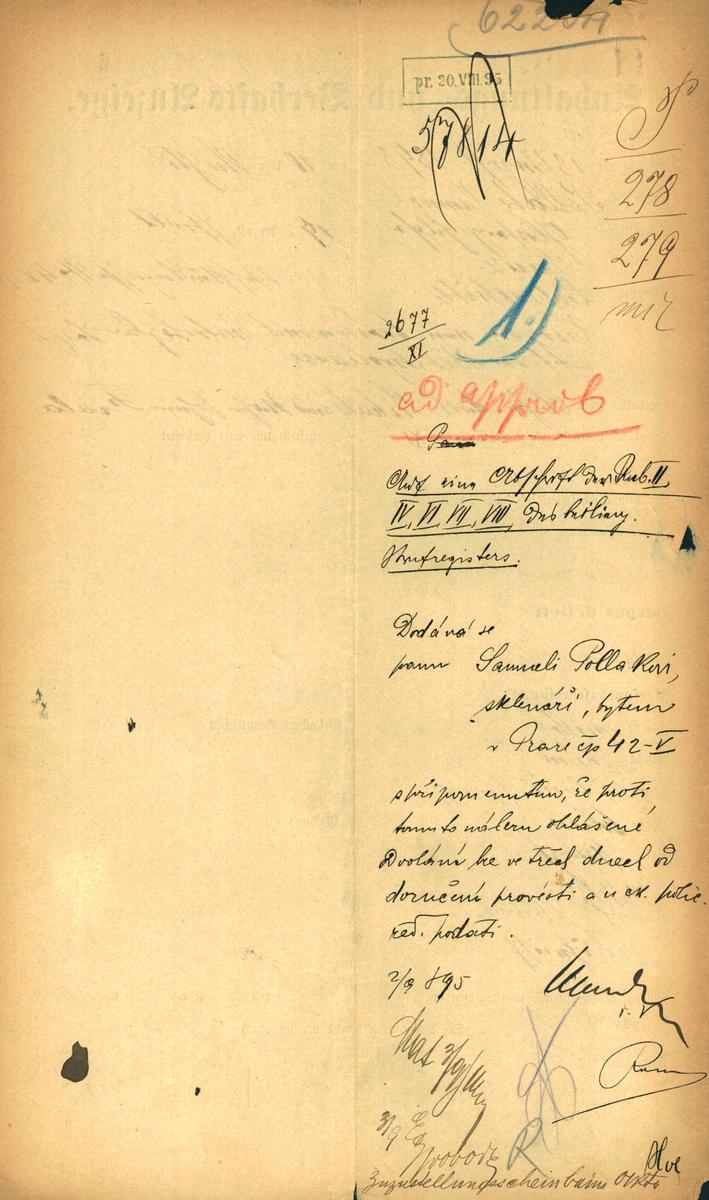 pr. 20.VIII.95
57814
278
279
2677
XI
1.)
ad approb
Auf eine Abschrift der Rub. II
IV, VI, VII, VIII, des
Strafregisters.
Dodává se
panu Samueli Pollakovi,
sklenáři, bytem
v Praze čp 42-V
s připomenutím, že proti
tomuto nálezu ohlášené
Dvolání lze ve třech dnech od
doručení provésti a u ck. polic.
řed. podati.
2/9 895
3/9
3/9
Zuzustellungsschein beim Akte